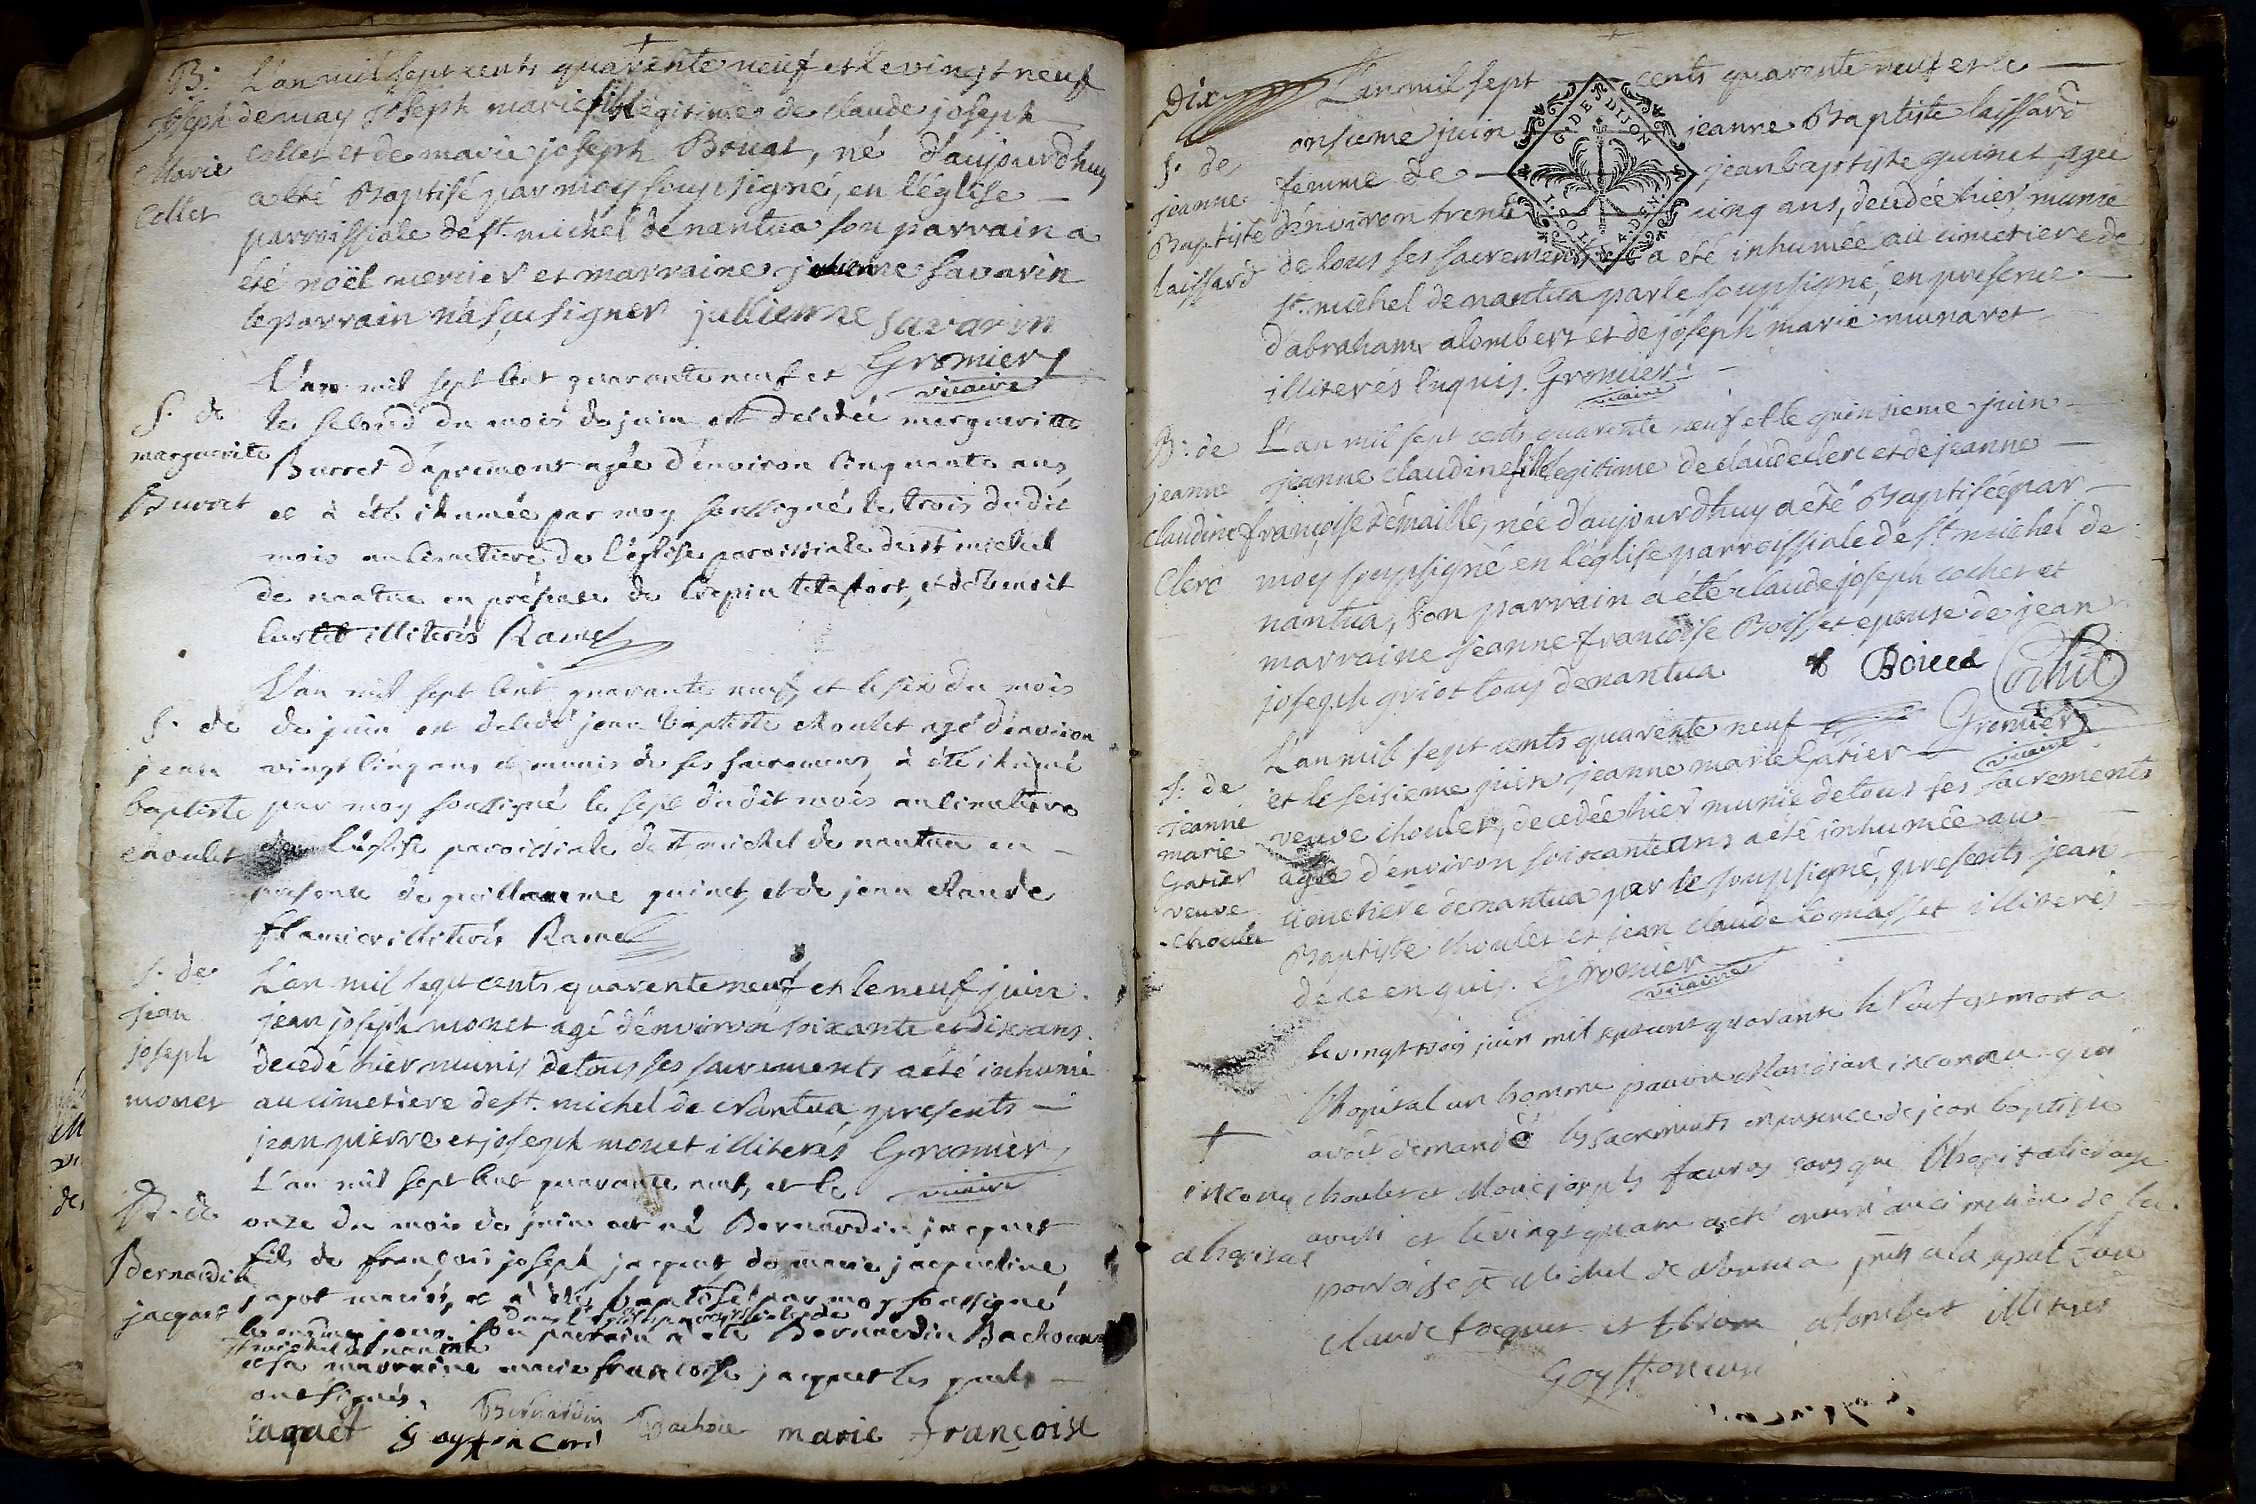 B:
Joseph
Marie
Collet
L'an mil sept cents quarente neuf et le vingt neuf
de may Joseph marie fils légitime de claude joseph
collet et de marie joseph Bouat, né d'aujourdhuy
a été Baptisé par moy soupsigné, en l'église
parroissiale de st. michel de nantua son parrain a
été noël mercier et marraine julienne savarin
le parrain n'a sçu signer jullienne savarin
Gromier
vicaire
S. de
marguerite
Burret
L'an mil sept cent quarante neuf et
le second du mois de juin est decedée margueritte
Burret d'apremont agée d'environ cinquante ans,
et à été ihumée par moy soussigné le trois dudit
mois au cimetiere de l'église paroissiale de st michel
de nantua en présence de Crepin et de benoit
illiterés Ramel
S. de
jean
baptiste
choulet
L'an mil sept cent quarante neuf, et le six du mois
de juin est decedé jean baptiste choulet agé d'environ
vingt cinq ans et munis de ses sacremens, à été ihumé
par moy soussigné le sept dudit mois au cimetiere
l'église paroissiale de st michel de nantua en
presence de guillaume guinet, et de jean claude
flamier illiterés Ramel
S. de
jean
joseph
monet
L'an mil sept cents quarente neuf et le neuf juin
jean joseph monet agé d'environ soixante et dix ans
decedé hier munis de tous ses sacrements a été inhumé
au cimetiere de st. michel de Nantua, presents
jean pierre et joseph monet illiterés Gromier
vicaire
B. de
Bernardin
jacquet
L'an mil sept cent quarante neuf, et le
onze du mois de juin est né Bernardin jacquet
fils de françois joseph jacquet de marie jacqueline
japot mariés, et à été baptisé par moy soussigné
dans l'église parroissiale de
le même jour. son parrain à été Bernardin Bachoud
st michel de nantua
et sa marraine marie françoise jacquet les quels
ont signés.
jaquet Goyffon curé Bernardin Bachoie marie françoise
Dix
L'an mil sept cents quarente neuf et le
G. DE DIJON
S. de
jeanne
Baptiste
laissard
onsieme juin jeanne Baptiste laissard
femme de jean baptiste guinet agée
d'environ trente cinq ans, decedée hier munie
de tous ses sacrements a été inhumée au cimetiere de
st. michel de nantua par le soupsigné, en presence
d'abraham alombert et de joseph marie munaret
illiterés enquis. Gromier
vicaire
B: de
jeanne
claudine
Clerc
L'an mil sept cents quarente neuf et le quinsieme juin
jeanne claudine fille legitime de claude clerc et de jeanne
françoise démaille, née d'aujourdhuy a été Baptisée par
moy soupsigné en l'église parroissiale de st michel de
nantua, son parrain a été claude joseph cochet et
marraine jeanne françoise Boisset epouse de jean
joseph griot tous de nantua Cochet
Gromier
vicaire
S. de
jeanne
marie
Gatier
veuve
choulet
L'an mil sept cents quarente neuf
et le seisieme juin jeanne marie Gatier
veuve choulet, decedée hier munie de tous ses sacrements
agée d'environ soixante ans a été inhumée au
cimetiere de nantua par le soupsigné, presents jean
Baptiste choulet et jean claude illiterés
de ce enquis. Gromier
vicaire
inconu
a lhopital
le vingt trois juin mil sept cent quarante neuf est mort a
lhopital un homme pauvre mandian inconnu qui
avoit demandé les sacrements en presence de jean baptiste
choulet et joseph sans que lhopitalier aye
averti et le vingt quatre a été enterré au cimetiere de la
paroisse st Michel de Nantua
claude jacquet et alombert illiterés
Goyffon curé